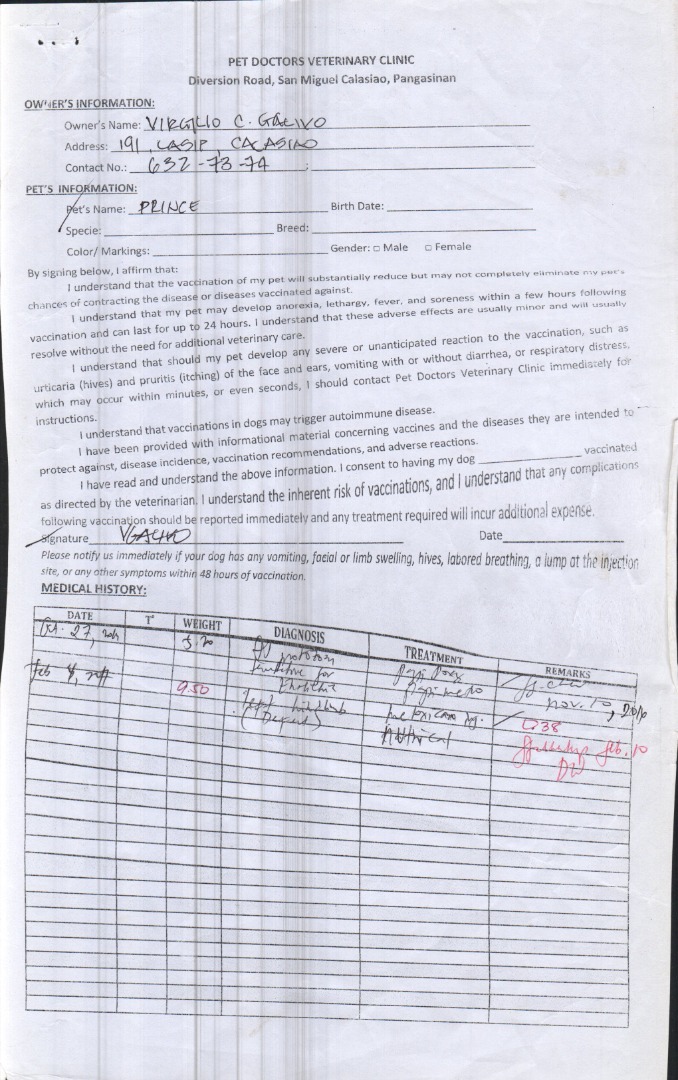 PET DOCTORS VETERINARY CLINIC
Diversion Road, San Miguel Calasiao, Pangasinan
OWNER'S INFORMATION:
Owner's Name: VIRGILIO C. GALIVO
Address: 191, LASIP, CALASIAO
Contact No.: 632-73-74
PET'S INFORMATION:
Pet's Name: PRINCE Birth Date:
Specie: Breed:
Color/ Markings: Gender: □ Male □ Female
By signing below, I affirm that:
I understand that the vaccination of my pet will substantially reduce but may not completely eliminate my pet's
chances of contracting the disease or diseases vaccinated against.
I understand that my pet may develop anorexia, lethargy, fever, and soreness within a few hours following
vaccination and can last for up to 24 hours. I understand that these adverse effects are usually minor and will usually
resolve without the need for additional veterinary care.
I understand that should my pet develop any severe or unanticipated reaction to the vaccination, such as
urticaria (hives) and pruritis (itching) of the face and ears, vomiting with or without diarrhea, or respiratory distress,
which may occur within minutes, or even seconds, I should contact Pet Doctors Veterinary Clinic immediately for
instructions.
I understand that vaccinations in dogs may trigger autoimmune disease.
I have been provided with informational material concerning vaccines and the diseases they are intended to
protect against, disease incidence, vaccination recommendations, and adverse reactions.
I have read and understand the above information. I consent to having my dog vaccinated
as directed by the veterinarian. I understand the inherent risk of vaccinations, and I understand that any complications
following vaccination should be reported immediately and any treatment required will incur additional expense.
Signature Date
Please notify us immediately if your dog has any vomiting, facial or limb swelling, hives, labored breathing, a lump at the injection
site, or any other symptoms within 48 hours of vaccination.
MEDICAL HISTORY:
DATE T° WEIGHT DIAGNOSIS TREATMENT REMARKS
27,
for
nov. 10, 2016
Feb 4, 9.50
38
feb. 10